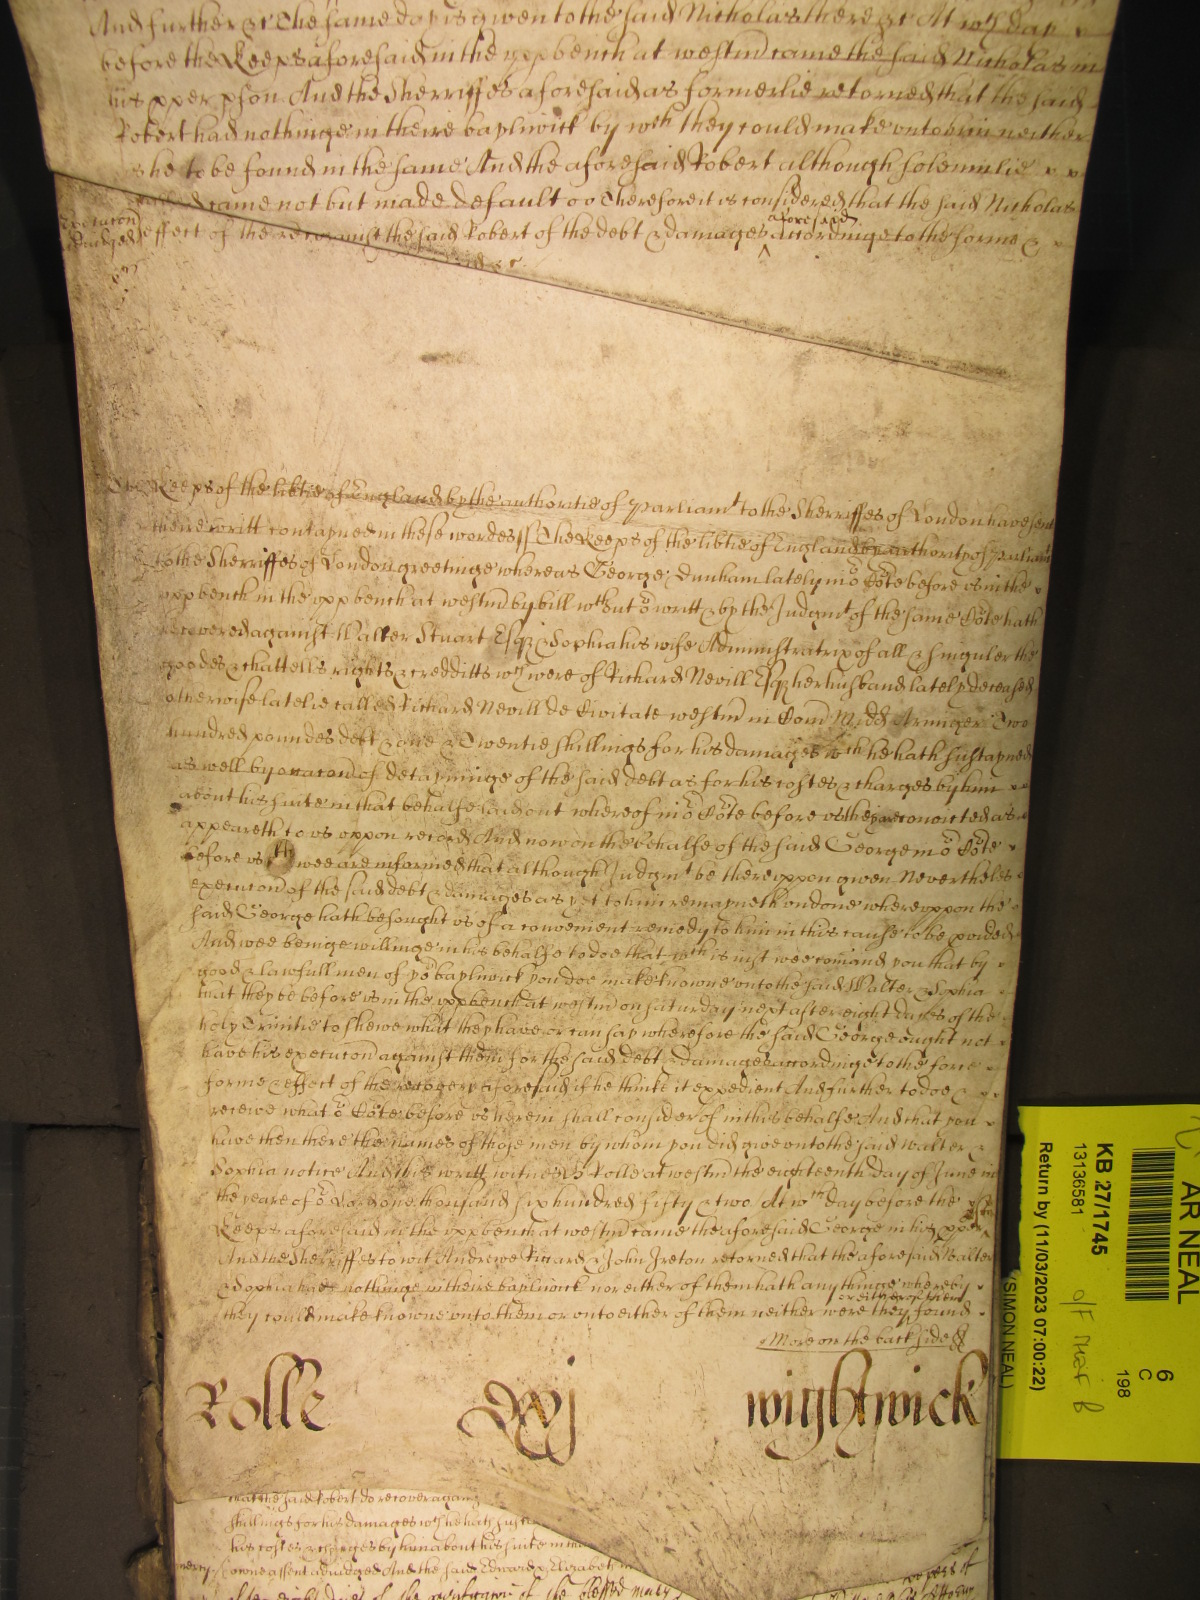 And further &c The same day is given to the said Nicholas there &c At wch day
before the Keeps aforesaid in the uppbench at westmr came the said Nicholas in
his pper pson And the Sherriffes aforesaid as formerlie retorned that the said
Robert had nothinge in theire baylywick by wch they could make unto him neither
he to be found in the same And the aforesaid Robert although solemnlie
called came not but made default Therefore it is considered that the said Nicholas
effect of the against the said Robert of the debt & damages aforesaid accordinge to the forme &
Execucon
adiudged
Keeps of the libtie of England by the authoritie of Parliamt to the Sherriffes of London have sent
theire writt contayned in these wordes ss The Keeps of the libtie of England by authority of Parliamt
to the Sherriffes of London greetinge whereas George Dunham lately in or Cote before us in the
uppbench in the uppbench at westmr by bill wthout or writt & by the Judgmt of the same Cote hath
recovered against Walter Stuart Esqr & Sophia his wife Administratrix of all & singuler the
goodes & chattells rights & credditts wch were of Richard Nevill Esqr her husband lately deceased
otherwise latelie called Richard Nevill de Civitate westmr in Com Midd Armiger Two
hundred poundes debt & one & Twentie shillings for his damages wch he hath sustayned
as well by occacon of detayninge of the said debt as for his costes & charges by him
about his suite in that behalfe laid out whereof in or Cote before us they are convicted as
appeareth to us uppon record And now on the behalfe of the said George in or Cote
before us wee are informed that although Judgmt be thereuppon given Nevertheles
execucon of the said debt & damages as yet to him remayneth undone whereuppon the
said George hath besought us of a convenient remedy to him in this cause to be pvided
And wee beinge willinge in his behalfe to doe that wch is iust wee comand you that by
good & lawfull men of yor baylywick you doe make knowne unto the said Walter & Sophia
that they be before us in the uppbench at westmr on saturday next after eight dayes of the
holy Trinitie to shewe what they have or can say wherefore the said George ought not
have his execucon against them for the said debt & damages accordinge to the force
forme & effect of the recovery aforesaid if he thinke it expedient And further to doe &
receive what or Cote before us herein shall consider of in this behalfe And that you
have then there the names of those men by whom you did give unto the said Walter &
Sophia notice And this writt witnes H Rolle at westmr the eighteenth day of June in
the yeare of or Lord one thousand six hundred fifty & two At wch day before the
Keeps aforesaid in the uppbench at westmr came the aforesaid George in his pper
And the Sherriffes to wit Andrewe Ricard & John Ireton retorned that the aforesaid Walter
& Sophia had nothinge in theire baylywick nor either of them hath any thinge whereby
they could make knowne unto them or unto either of them neither were they or either of them found
More on the back side
Rolle wightwick
that the said Robert do recover again
shillings for his damages wch he hath
his costes & charges by him about his suite in
mercy owne assent adiudged And the said Edward & Elizabeth
of the purificacon of the blessed mary
AR NEAL
6
C
198
KB 27/1745
13136581
Return by (11/03/2023 07:00:22)
(SIMON NEAL)